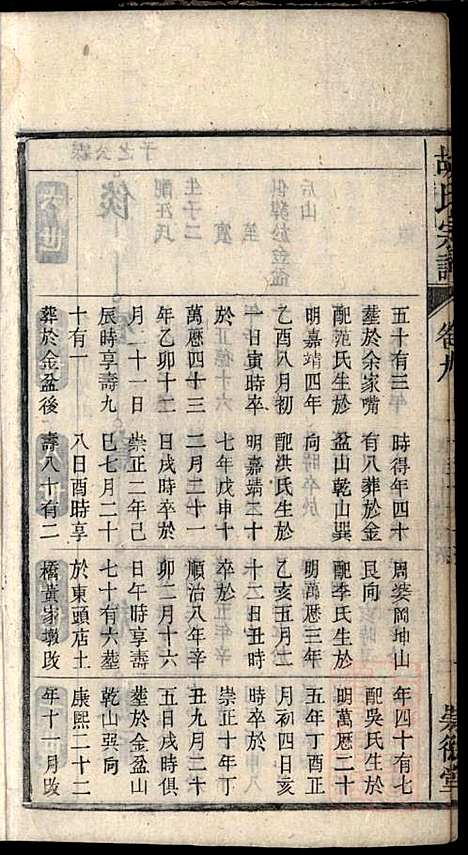 胡氏宗譜
卷九
五十有三
塟於余家嘴
配范氏生於
明嘉靖四年
乙酉八月初
一日寅時卒
萬曆四十三
年乙卯十二
月二十一日
辰時享壽九
十有一
葬於金盆後
時得年四十
有八葬於金
盆山乾山巽
向
配洪氏生於
明嘉靖二十
七年戊申十
二月二十一
日戌時卒於
崇正二年己
巳七月二十
八日酉時享
壽八十有二
周婆岡坤山
艮向
配李氏生於
明萬曆三年
乙亥五月二
十二日丑時
卒於
順治八年辛
卯二月十六
日午時享壽
七十有六塟
於東頭店土
橋黃家墩改
年四十有七
配吳氏生於
明萬曆二十
五年丁酉正
月初四日亥
時卒於
崇正十年丁
丑九月二十
五日戌時俱
塟於金盆山
乾山巽向
康熙二十二
年十一月改